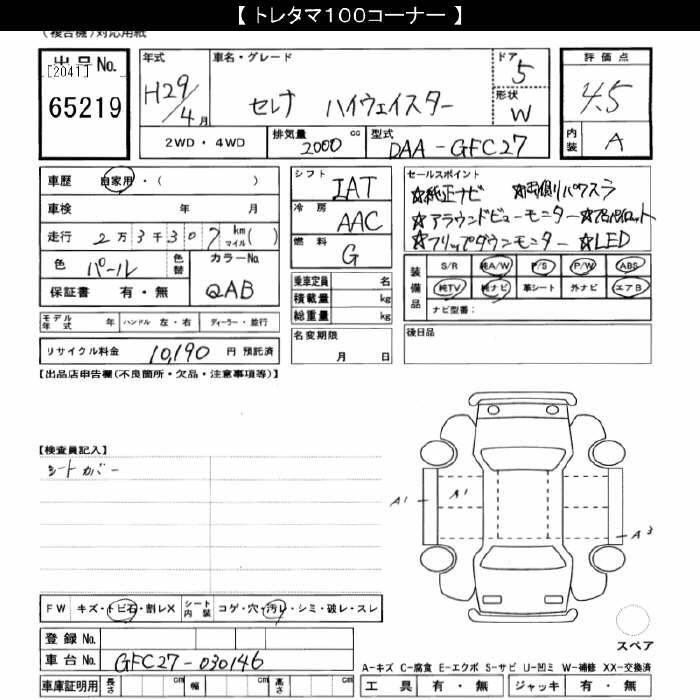 【 トレタマ100コーナー 】
(複合機)対応用紙
出品No. [2041] 65219
年式 H29/4月
車名・グレード セレナ ハイウェイスター
ドア 5
形状 W
評価点 4.5
内装 A
2WD・4WD 排気量 2000 cc 型式 DAA-GFC27
車歴 自家用・( )
車検 年 月
走行 2万3千307 km マイル( )
色 パール 色替 カラーNo. QAB
保証書 有・無
モデル年式 年 ハンドル 左・右 ディーラー・並行
リサイクル料金 10,190 円 預託済
シフト IAT
冷房 AAC
燃料 G
乗車定員 名
積載量 kg
総重量 kg
名変期限 月 日
セールスポイント
☆純正ナビ ☆両側パワスラ
☆アラウンドビューモニター ☆プロパイロット
☆フリップダウンモニター ☆LED
装備品 S/R 純A/W P/S P/W ABS
純TV 純ナビ 革シート 外ナビ エアB
ナビ型番:
後日品
【出品店申告欄(不良箇所・欠品・注意事項等)】
【検査員記入】
シートカバー
A1 A1 A3
FW キズ・トビ石・割レX シート内装 コゲ・穴・汚レ・シミ・破レ・スレ
スペア
登録No.
車台No. GFC27-030146
A-キズ C-腐食 E-エクボ S-サビ U-凹ミ W-補修 XX-交換済
車庫証明用 長さ cm 幅 cm 高さ cm
工具 有・無 ジャッキ 有・無